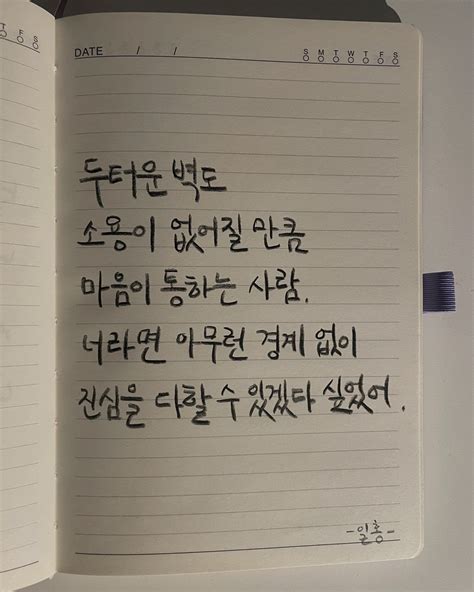 DATE / /
S M T W T F S
두터운 벽도
소용이 없어질 만큼
마음이 통하는 사람.
너라면 아무런 경계 없이
진심을 다할 수 있겠다 싶었어.
-일홍-
T F S